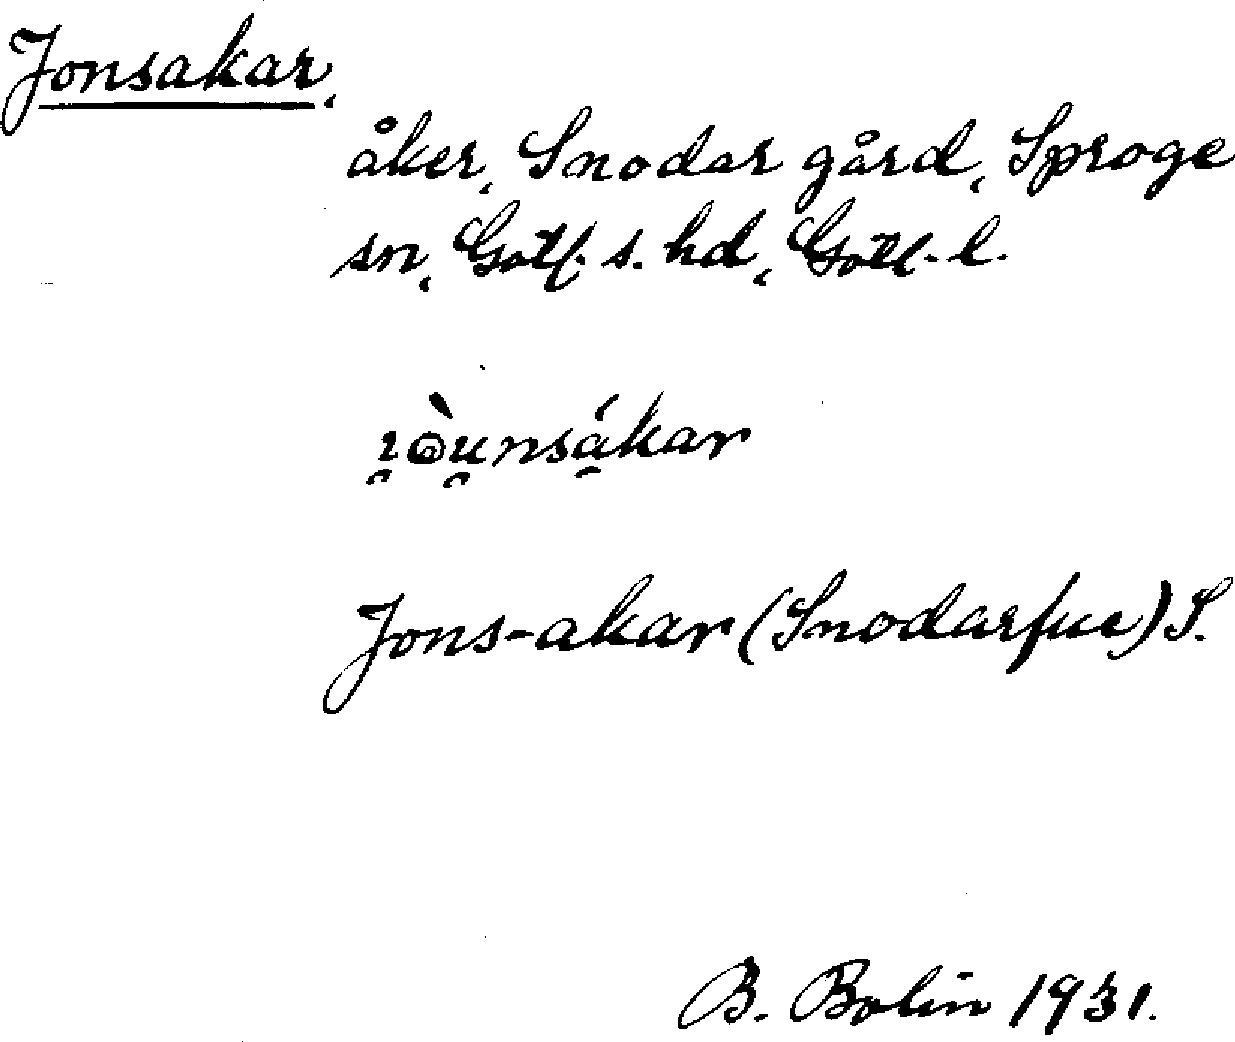 Jonsakar,
åker, Snodar gård, Sproge
sn, Gotl. s. hd, Gotl. l.
Jons-akar (Snodarfue) S.
B. Bolin 1931.